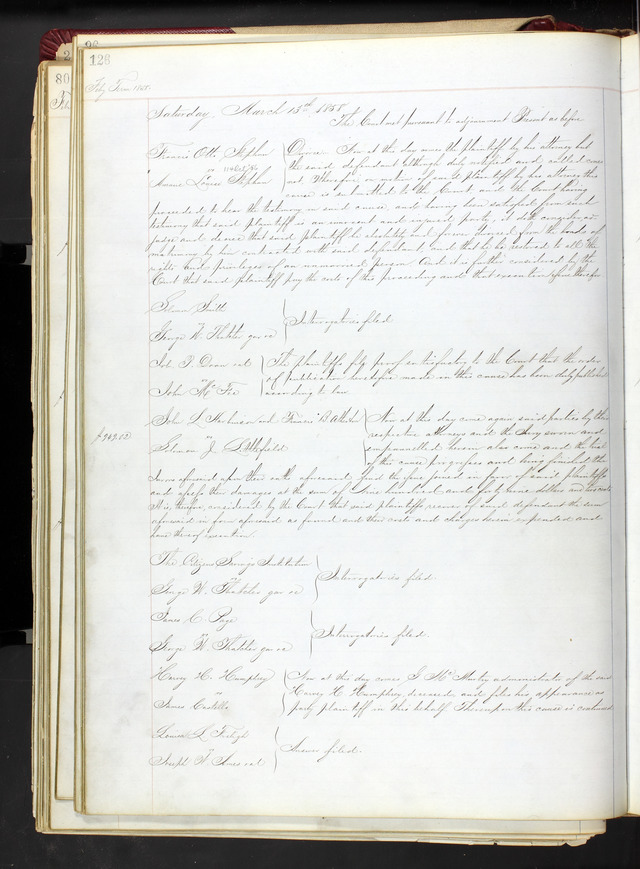 126
80
Feby Term 1858.
Saturday, March 13th 1858
The Court met pursuant to adjournment Present as before
Francis Otto Stephan
vs
Louise Stephan
Divorce Now at this day comes the plaintiff by his attorney but
the said defendant although duly notified and called comes
not. Wherefore on motion of said plaintiff by his attorney this
cause is submitted to the Court and the Court having
proceeded to hear the testimony in said cause, and having been satisfied from said
testimony that said plaintiff is an innocent and injured party, it doth consider, ad-
judge and decree that said plaintiff be absolutely and forever divorced from the bonds of
matrimony by him contracted with said defendant and that he be restored to all the
rights and privileges of an unmarried person And it is further considered by the
Court that said plaintiff pay the costs of this proceeding and that execution issue therefor
Smith
vs
George W. Thatcher gar ee
Interrogatories filed
Job P. Doan et al
vs
John McFee
The plaintiffs file proof satisfactory to the Court that the order
of publication heretofore made in this cause has been duly published
according to law
John L. Harbinson and Francis
vs
Solomon J. Littlefield
$949.02
Now at this day come again said parties by their
respective attorneys and the Jury sworn and
empannelled herein also come and the trial
of this cause progresses and being finished the
Jurors aforesaid upon their oaths aforesaid find the issue joined in favor of said plaintiffs
and assess the damages at the sum of Nine hundred and forty nine dollars and two cents
It is, therefore, considered by the Court that said plaintiffs recover of said defendant the sum
aforesaid in form aforesaid as found and their costs and charges herein expended and
have thereof execution
The Citizens Savings Institution
vs
George W. Thatcher gar ee
Interrogatories filed.
James C. Page
vs
George W. Thatcher gar ee
Interrogatories filed.
Harvey H. Humphrey
vs
James Castello
Now at this day comes administrator of the said
Harvey H. Humphrey, deceased, and files his appearance as
party plaintiff in this behalf Thereupon this cause is continued
Louisa L.
vs
Joseph W. et al
Answer filed.